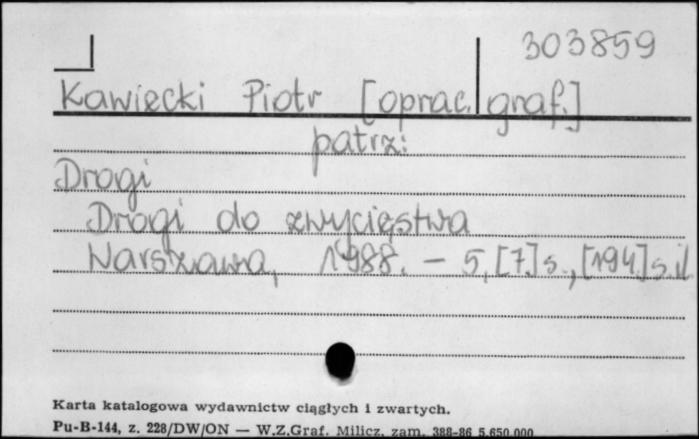 303859
Kawiecki Piotr [oprac. graf.]
patrz:
Drogi
Drogi do zwycięstwa
Warszawa, 1988. - 5, [7] s., [194] s. il.
Karta katalogowa wydawnictw ciągłych i zwartych.
Pu-B-144, z. 228/DW/ON — W.Z.Graf. Milicz, zam. 388-86 5.650.000